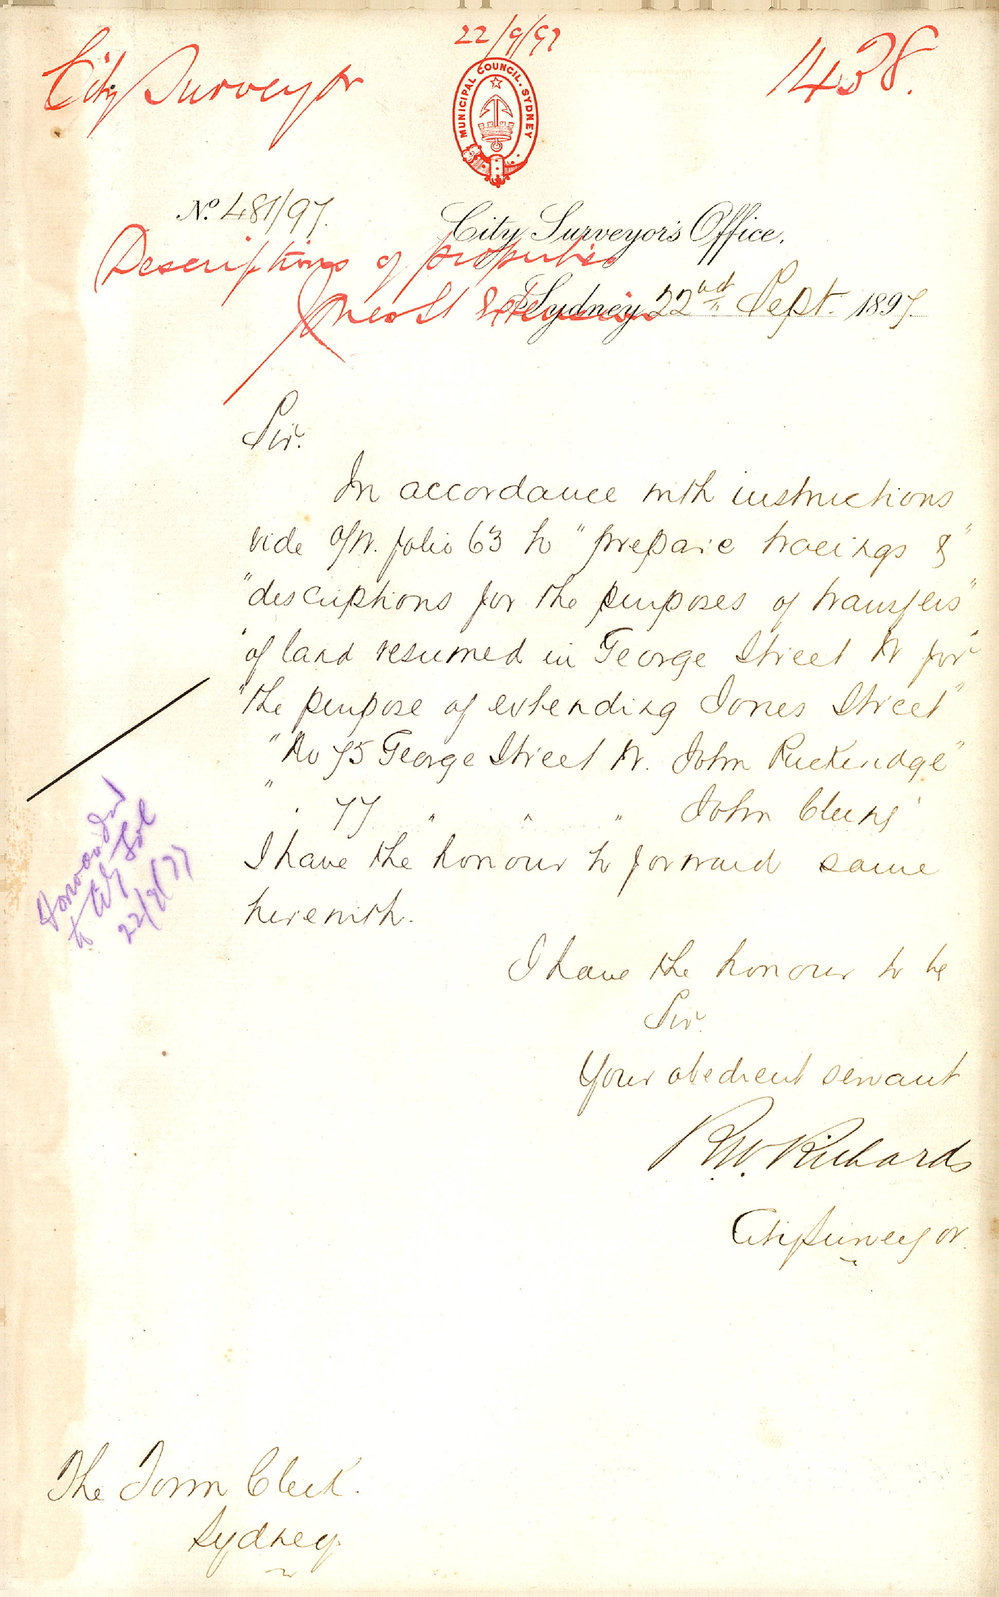 22/9/97
City Surveyor
1438.
MUNICIPAL COUNCIL. SYDNEY
No. 481/97.
City Surveyor's Office,
Descriptions of properties
Jones St Extension
Sydney 22nd Sept. 1897
Sir.
In accordance with instructions
vide folio 63 to "prepare tracings &
"descriptions for the purposes of transfers"
"of land resumed in George Street W for"
"the purpose of extending Jones Street"
"No 75 George Street W. John Ruckeridge"
" . 77 " " " John Cluny"
I have the honour to forward same
herewith.
I have the honour to be
Sir.
Your obedient servant
R.W. Richards
City Surveyor.
Forwarded
to City Sol
22/9/97
The Town Clerk.
Sydney.